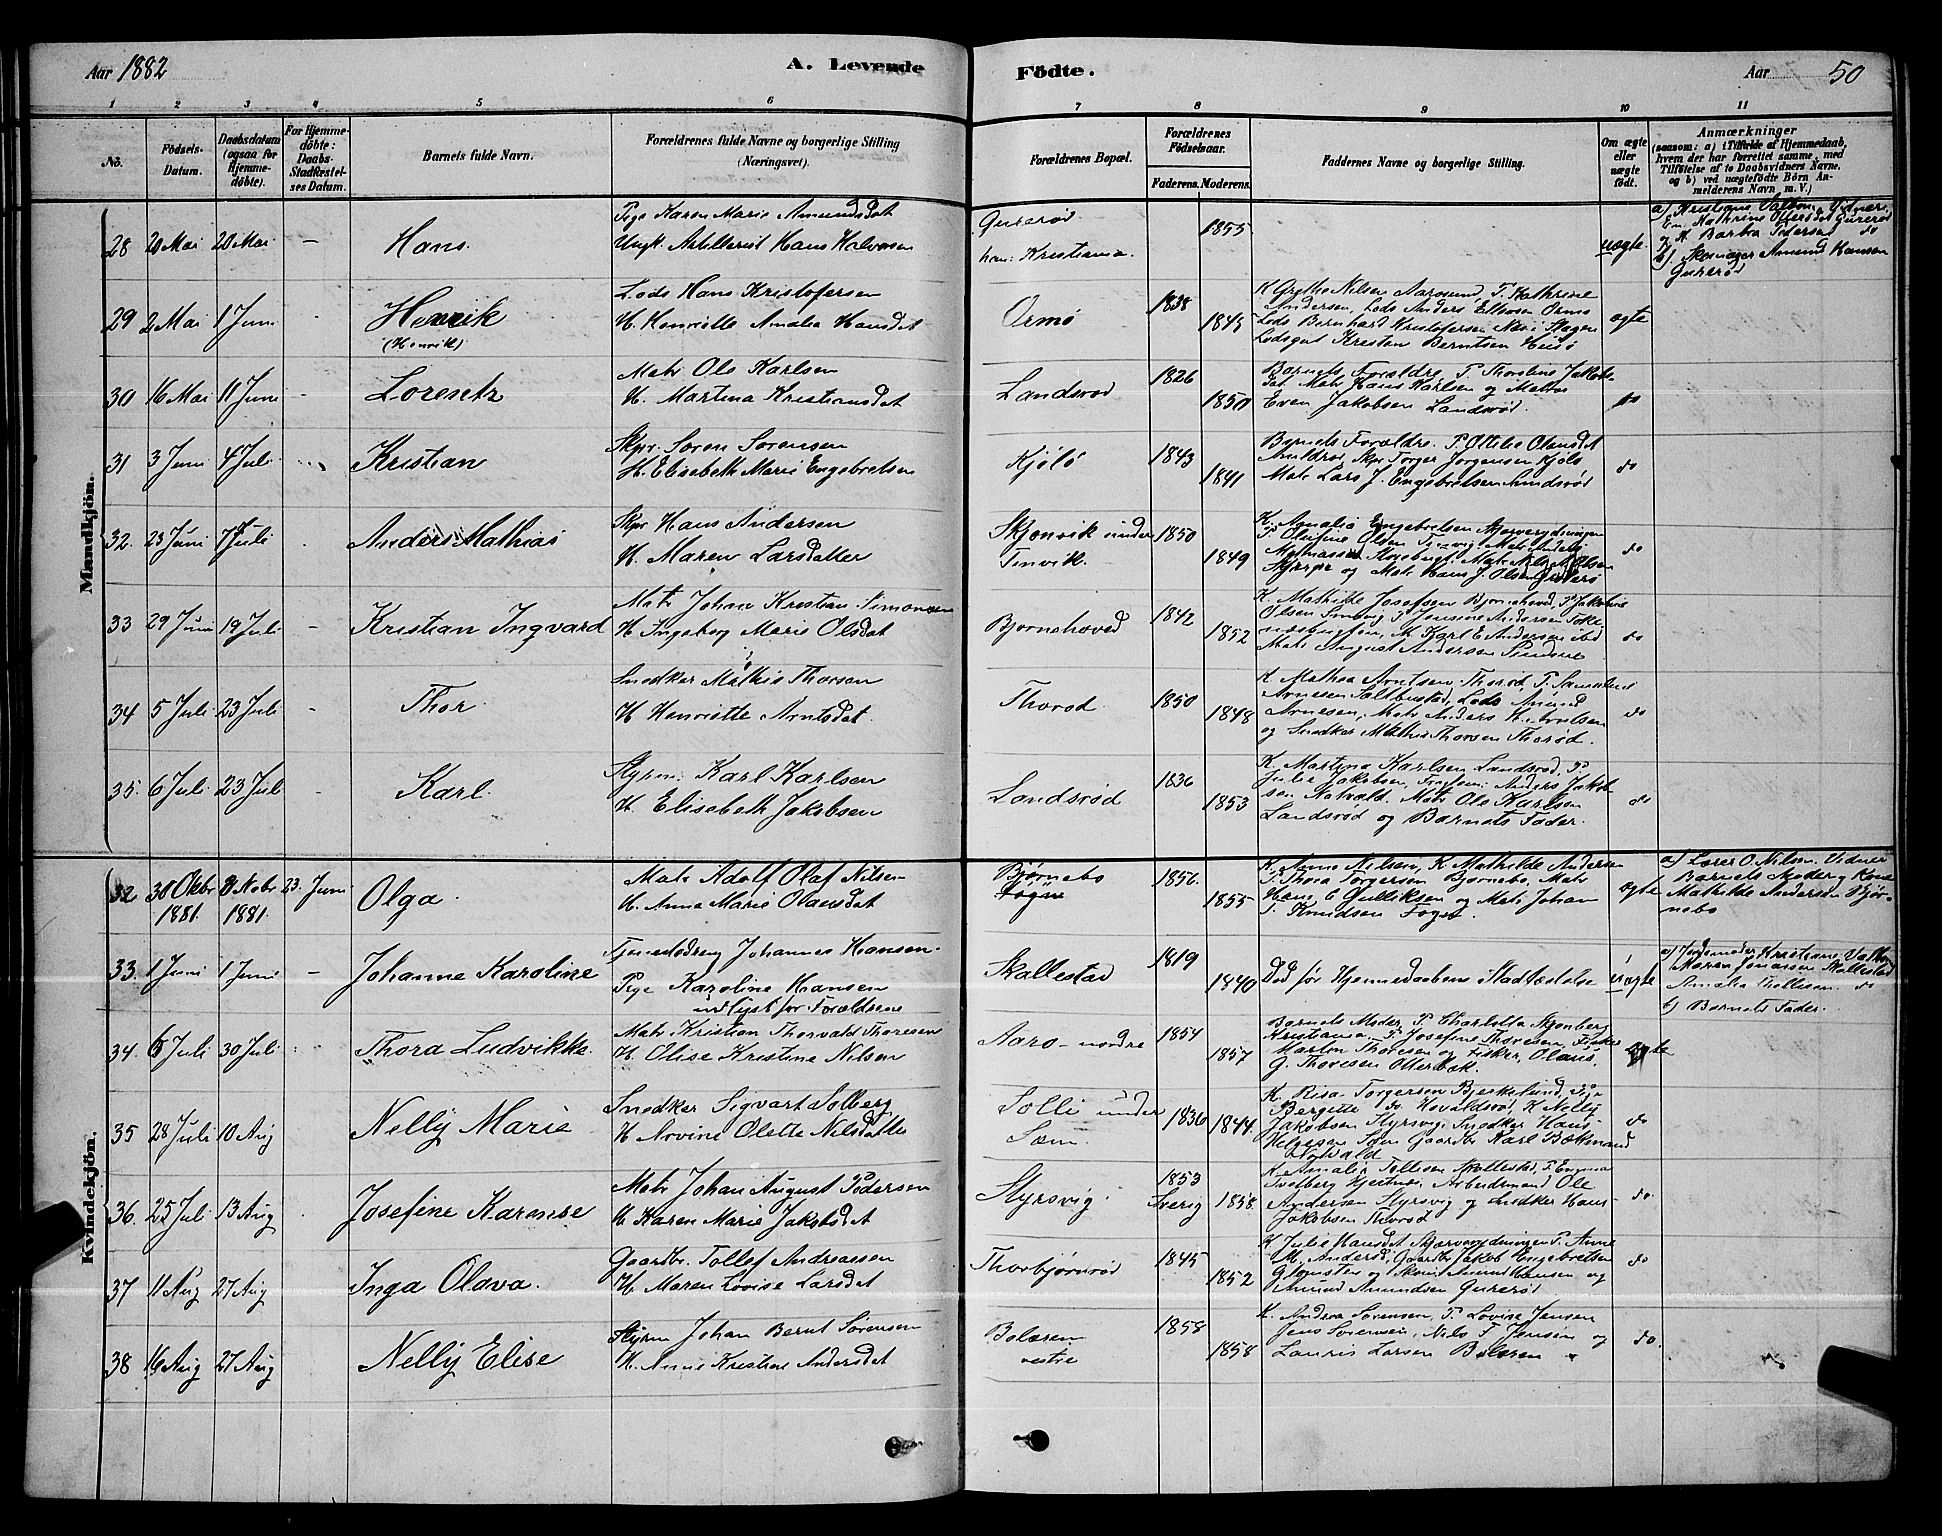 Aar 1882 A. Levende Födte. Aar 50
1 2 3 4 5 6 7 8 9 10 11
No. Födsels-Datum. Daabsdatum (ogsaa for Hjemmedöbte). For Hjemmedöbte: Daabs-Stadfæstelses Datum. Barnets fulde Navn. Forældrenes fulde Navne og borgerlige Stilling (Næringsvei). Forældrenes Bopæl. Forældrenes Födselsaar. Faderens. Moderens. Faddernes Navne og borgerlige Stilling. Om ægte eller uægte födt. Anmærkninger (saasom: a) i Tilfælde af Hjemmedaab, hvem der har forrettet samme, med Tilföielse af to Daabsvidners Navne, og b) ved uægtefödte Börn Anmelderens Navn m. V.)
Mandkjön.
28 20 Mai 20 Mai – Hans. Pige Karen Marie Amundsdat
Ungk. Artillerist Hans Halvorsen
Gurerød
han: Kristiania
1855 uægte.
b) Skomager Amund Hansen
Gurerød
29 2 Mai 1 Juni – Henrik
(Henrik)
Lods Hans Kristofersen
H. Henriette Amalia Hansdat
Ormø 1838 1845
K Grethe Nilsen Aarosund, P. Kathrine
Andersen, Lods Anders Ellevsen Ormø
Lods Bernhard Kristofersen
Lodsgut Kristen Berntsen
ægte
30 16 Mai 11 Juni – Lorentz
Matr Ole Karlsen
H. Martina Kristiansdat
Landsrød 1826 1850
Barnets Forældre. P. Thorstine Jakobs-
dat Matr Hans Karlsen og Matros
Even Jakobsen Landsrød.
do
31 3 Juni 4 Juli Kristian
Skpr. Søren Sørensen
H. Elisabeth Marie Engebretsen
Kjøløø 1843 1841
Barnets Forældre. P. Ottilie Olausdat
Skpr Torger Jørgensen Kjølø
Matr Lars J. Engebretsen Sundsrød
do
32. 23 Juni 7 Juli Anders Mathias
Skpr Hans Andersen
H. Maren Larsdatter
Skjonvik under
Timvik.
1850 1849
K. Amalia Engebretsen
P. Olufine Olsen
og Matr Hans J. Olsen
do
33 29 Juni 19 Juli – Kristian Ingvard
Matr Johan Kristian Simonsen
H. Ingeborg Marie Olsdat
Bjørnehoved 1842 1852
K. Mathilde Josefsen Bjørnehoved, P. Jakobine
Olsen P Jensine Andersen
M Karl E Andersen ibid
Matr August Andersen
do
34 5 Juli 23 Juli – Thor.
Snedker Mathis Thorsen
H Henriette Arntsdat.
Thorød. 1850 1848
K Mathea Arntsen, Thorød, P. Samuline
Arnesen Saltbustad, Lods Amund
Arnesen, Matr Anders H. Arntsen
og Snedker Mathis Thorsen Thorød.
do
35. 6 Juli 23 Juli – Karl.
Styrm: Karl Karlsen
H Elisabeth Jakobsen
Landsrød 1836 1853
K. Martina Karlsen Landsrød, P.
Julie Jakobsen, Anders Jakob-
sen Natvald. Matr Ole Karlsen
Landsrød og Barnets Fader.
do
Kvindekjön.
32 30 Oktbr 1881. 8 Nobr 1881. 23. Juni Olga.
Matr Adolf Olaf Nilsen
H. Anna Marie Olausdat
Bjørnebo
1856. 1855
K. Anna Nilsen, K Mathilde Andersen
P. Thora Torgersen Bjørnebo, Matr
Hans C Gulliksen og Matr Johan
Knudsen
ægte
a) Lærer O. Nilsen. Vidner
Barnets Moder og Kone
Mathilde Andersen Bjør-
nebo
33. 1 Juni 1 Juni – Johanne Karoline
Tjenestedreng Johannes Hansen.
Pige Karoline Hansen
indlyst for Forældrene
Skallestad 1819 1840
Død før Hjemmedaabens Stadfæstelse
uægte
a) Jordemoder Kristiane Valbom
Maren Jonassen Skallestad
Amalia Thollesen. do
b) Barnets Fader.
34. 6 Juli 30 Juli Thora Ludvikke.
Matr Kristian Thorvald Thoresen
H Olise Kristine Nilsen
Aarø nordre 1854 1857
Barnets Moder, P Charlotta Skjønberg
Kristiania, P. Josefine Thoresen, Fisker
Martin Thoresen og Fisker, Olaus
G. Thoresen Otterbæk.
ægte
35 28 Juli 10 Aug Nelly Marie
Snedker Sigvart Solberg
H Arvine Olette Nilsdatter
Solli under
Sæm.
1836 1844.
K. Risa Torgersen Bjerkelund, Pige
Bergitte do. Hovaldsrød, K Nelly
Jakobsen Styrsvig, Snedker Hans
Helgesen Sæm Gaardbr Karl Bækmand
Natvald
do
36. 25 Juli 13 Aug Josefine Karense
Matr Johan August Pedersen
H Karen Marie Jakobsdat
Styrsvig. 1853 Sverig 1858
K Amalia Tollesen Skallestad, P. Emma
Tvetberg Arbeidsmand Ole
Andersen Styrsvig og Snedker Hans
Jakobsen Thorød
do.
37 11 Aug 27 Aug Inga Olava.
Gaardbr. Tollef Andreassen
H. Maren Lovise Larsdat
Thorbjørnrød 1845 1852
K Julie Hansdat P. Anne
M. Andersd, Gaardbr Jakob Engebretsen
og Skom. Amund Hansen og
Amund Amundsen Gurerød
do
38 16 Aug 27 Aug Nelly Elise
Styrm Johan Bernt Sørensen
H. Anne Kristine Andersdat
Bolæren
vestre
1858 1858
K. Andrea Sørensen, P. Lovise Jensen
Jens Sørensen, Nils F Jensen og
Lauris Larsen Bolæren
do.